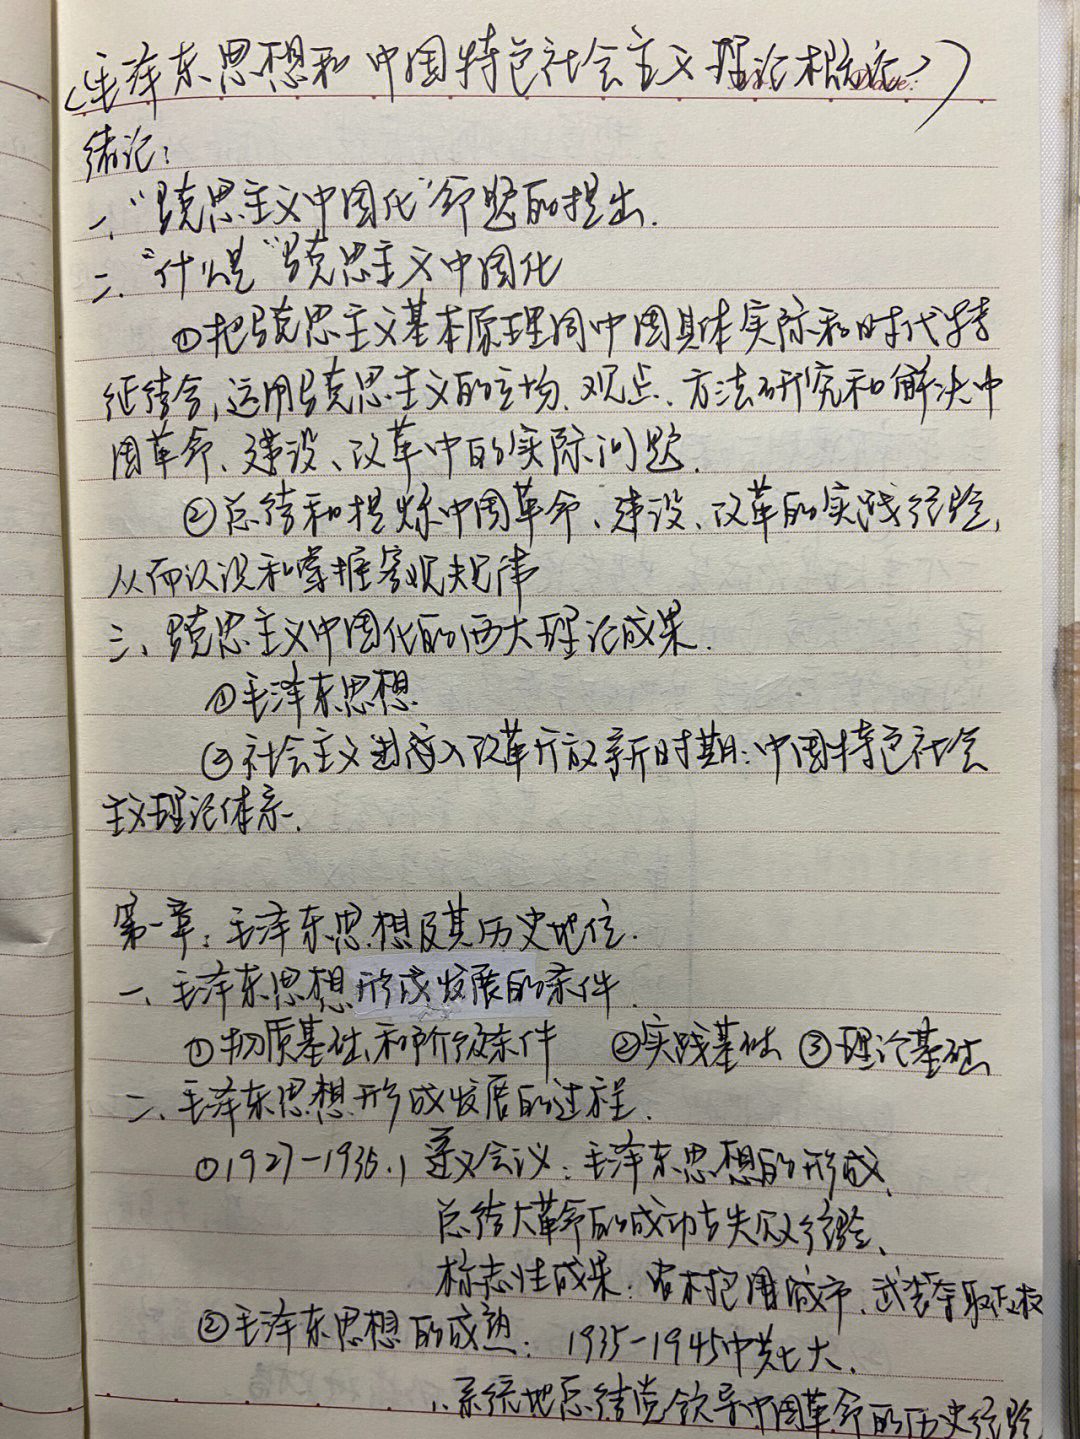 《毛泽东思想和中国特色社会主义理论概论》
绪论:
一、“马克思主义中国化”命题的提出.
二、“什么是”马克思主义中国化
①把马克思主义基本原理同中国具体实际和时代特
征结合,运用马克思主义的立场、观点、方法研究和解决中
国革命、建设、改革中的实际问题.
②总结和提炼中国革命、建设、改革的实践经验,
从而认识和掌握客观规律
三、马克思主义中国化的两大理论成果.
①毛泽东思想
②社会主义进入改革开放新时期:中国特色社会
主义理论体系.
第一章:毛泽东思想及其历史地位.
一、毛泽东思想形成发展的条件.
①物质基础和阶级条件 ②实践基础 ③理论基础
二、毛泽东思想形成发展的过程.
①1927-1935.1 遵义会议:毛泽东思想的形成.
总结大革命的成功与失败经验、
标志性成果:农村包围城市、武装夺取政权
②毛泽东思想的成熟: 1935-1945中共七大.
系统地总结党领导中国革命的历史经验